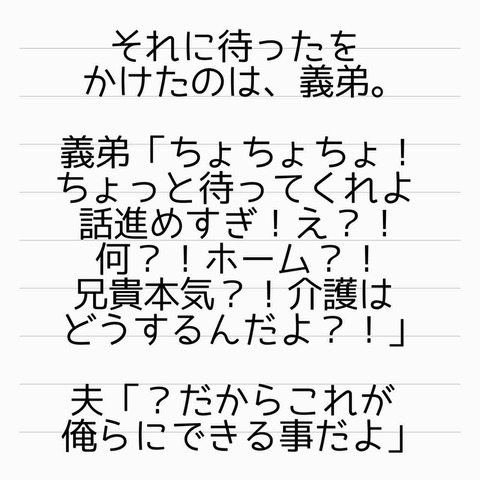 それに待ったを
かけたのは、義弟。
義弟「ちょちょちょ！
ちょっと待ってくれよ
話進めすぎ！え？！
何？！ホーム？！
兄貴本気？！介護は
どうするんだよ？！」
夫「？だからこれが
俺らにできる事だよ」